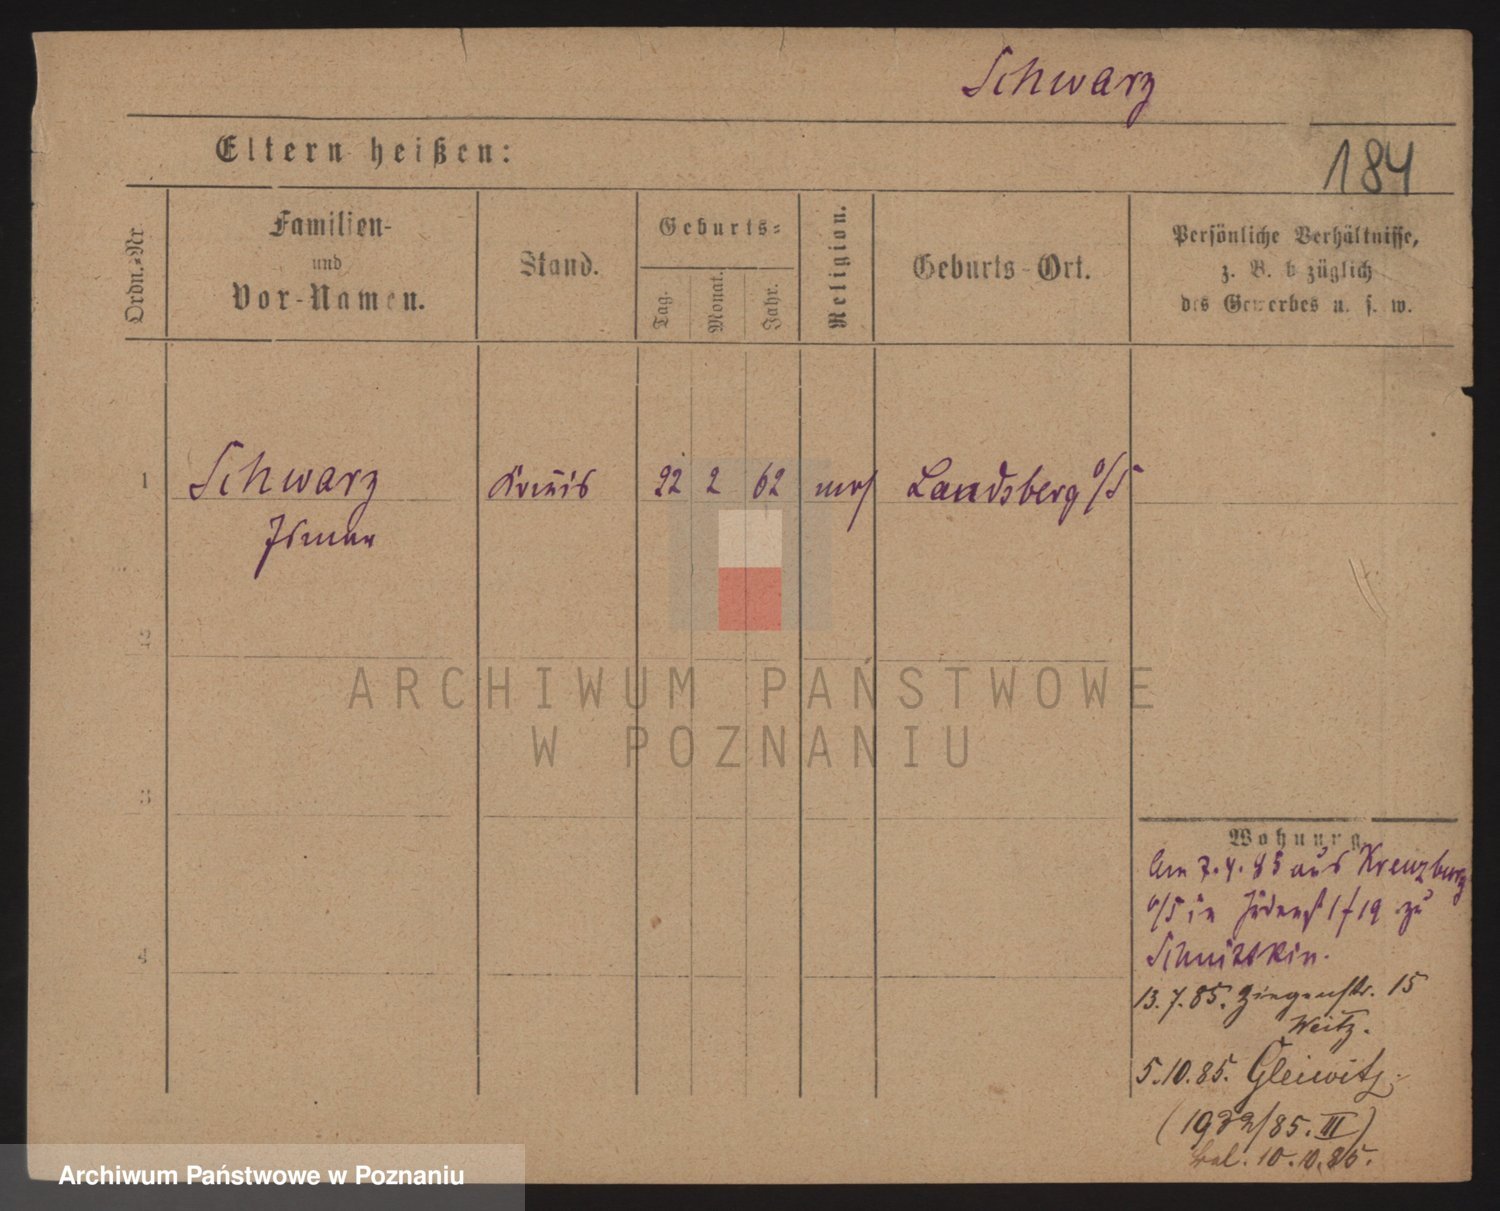 Schwarz
Eltern heißen:
184
Ordn.-Nr.
Familien-
und
Vor-Namen.
Stand.
Geburts-
Tag.
Monat.
Jahr.
Religion.
Geburts-Ort.
Persönliche Verhältnisse,
z. B. bezüglich
des Gewerbes u. s. w.
1
Schwarz
Ismar
Kommis
22
2
62
mos
Landsberg o/S
2
ARCHIWUM PAŃSTWOWE
W POZNANIU
3
Wohnung.
Am 7.4.85 aus Kreuzburg
o/S in 19 zu
4
13.7.85. Ziegenstr. 15
Weitz.
5.10.85. Gleiwitz.
(1932/85.III)
10.10.85.
Archiwum Państwowe w Poznaniu